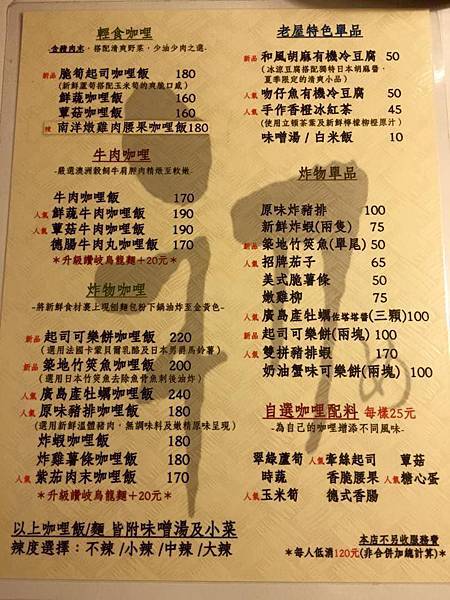 輕食咖哩
-含雞肉末，搭配清爽野菜，少油少肉之選-
新品 脆筍起司咖哩飯 180
(新鮮蘆筍搭配玉米筍的爽脆口感)
鮮蔬咖哩飯 160
蕈菇咖哩飯 160
辣 南洋燉雞肉腰果咖哩飯180
牛肉咖哩
-嚴選澳洲穀飼牛肩胛肉精燉至軟嫩-
牛肉咖哩飯 170
人氣 鮮蔬牛肉咖哩飯 190
人氣 蕈菇牛肉咖哩飯 190
德腸牛肉丸咖哩飯 170
＊升級讚岐烏龍麵＋20元＊
炸物咖哩
-將新鮮食材裹上現刨麵包粉下鍋油炸至金黃色-
新品 起司可樂餅咖哩飯 220
(選用法國卡蒙貝爾乳酪及日本男爵馬鈴薯)
新品 築地竹筴魚咖哩飯 200
(選用日本竹筴魚去除魚骨刺後油炸)
人氣 廣島產牡蠣咖哩飯 240
人氣 原味豬排咖哩飯 180
(選用新鮮溫體豬肉，無調味料及嫩精原味呈現)
炸蝦咖哩飯 180
炸雞薯條咖哩飯 180
人氣 紫茄肉末咖哩飯 170
＊升級讚岐烏龍麵＋20元＊
以上咖哩飯/麵 皆附味噌湯及小菜
辣度選擇：不辣 /小辣 /中辣 /大辣
老屋特色單品
新品 和風胡麻有機冷豆腐 50
(冰涼豆腐搭配獨特日本胡麻醬，
夏季限定的清爽小品)
人氣 吻仔魚有機冷豆腐 50
人氣 手作香橙冰紅茶 45
(使用立頓茶葉及新鮮檸檬柳橙原汁)
味噌湯 / 白米飯 10
炸物單品
原味炸豬排 100
新鮮炸蝦(兩隻) 75
新品 築地竹筴魚(單尾) 50
人氣 招牌茄子 65
美式脆薯條 50
嫩雞柳 75
人氣 廣島產牡蠣佐塔塔醬(三顆)100
新品 起司可樂餅(兩塊) 100
人氣 雙拼豬排蝦 170
奶油蟹味可樂餅(兩塊) 100
自選咖哩配料 每樣25元
-為自己的咖哩增添不同風味-
翠綠蘆筍 人氣 牽絲起司 蕈菇
時蔬 香脆腰果 人氣 糖心蛋
人氣 玉米筍 德式香腸
本店不另收服務費
＊每人低消120元(非合併加總計算)＊